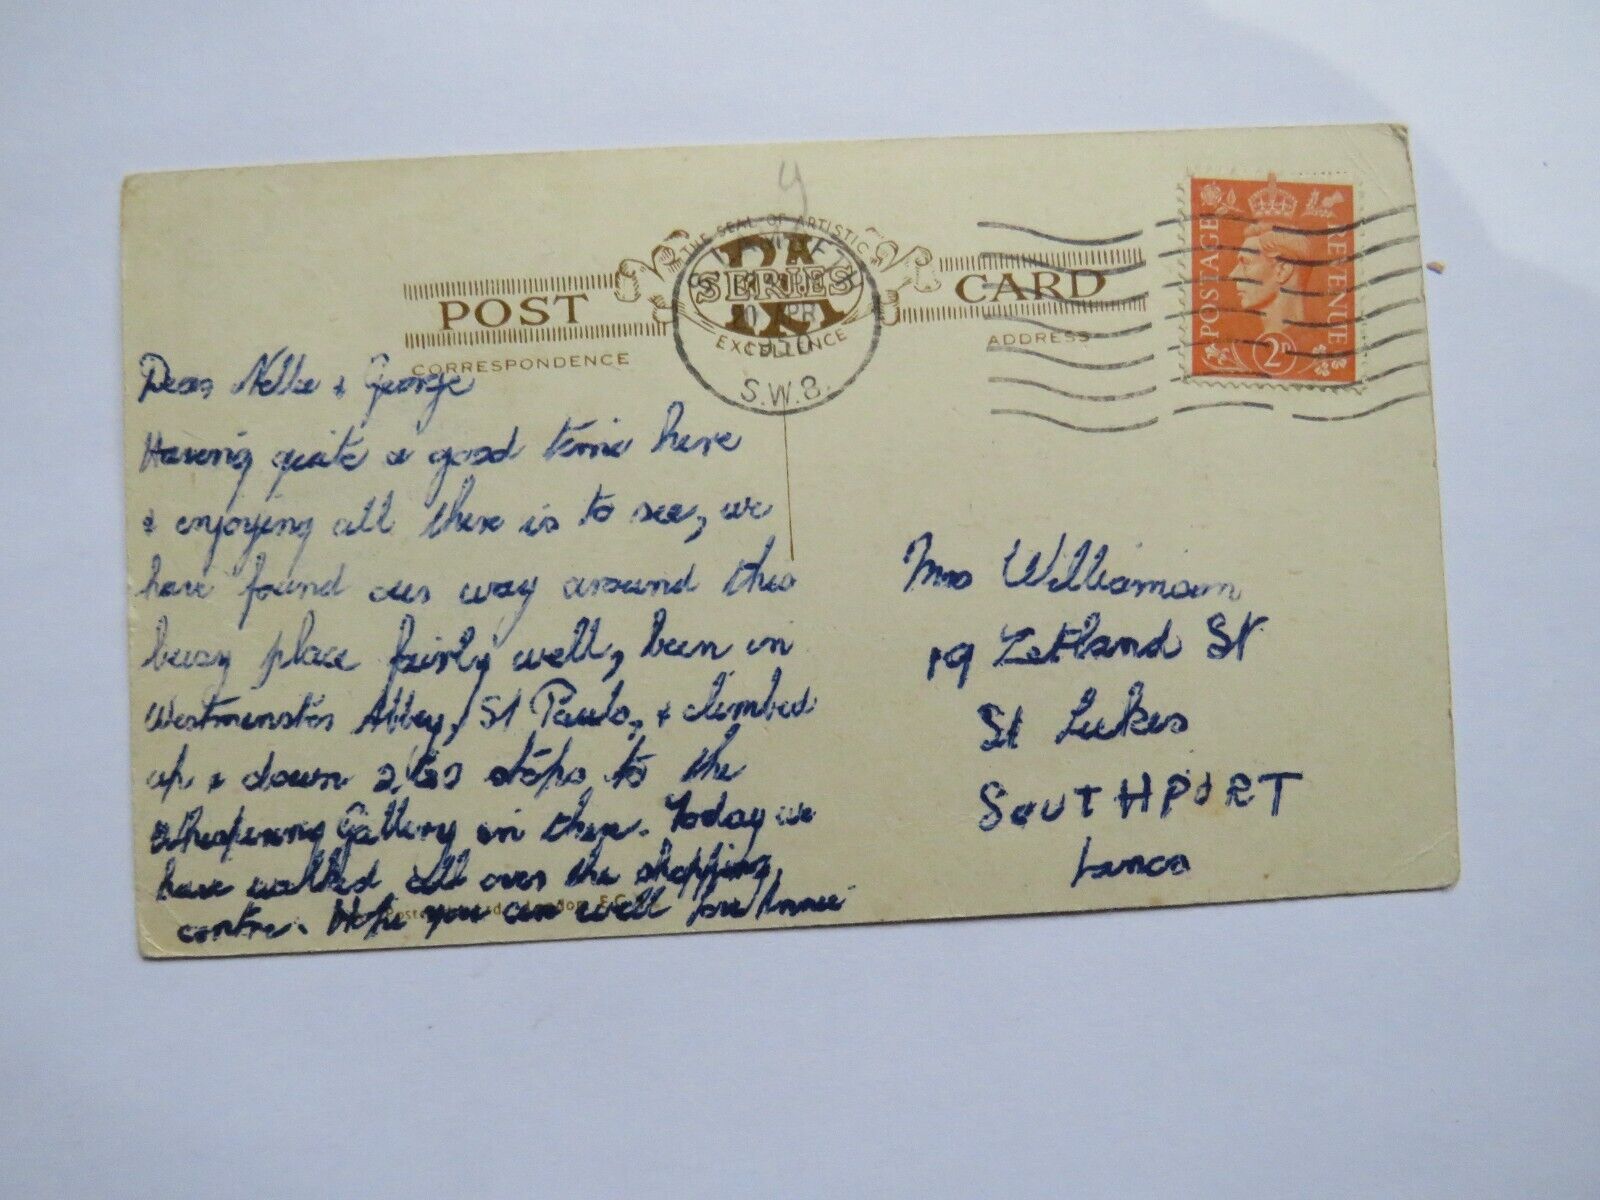 THE SEAL OF ARTISTIC
SERIES
EXCELLENCE
POST CARD
CORRESPONDENCE
ADDRESS
APR
1950
S.W.8.
POSTAGE
REVENUE
2D
Dear Nellie & George
Having quite a good time here
& enjoying all there is to see, we
have found our way around this
busy place fairly well, been in
Westminster Abbey, St Pauls, & climbed
up & down steps to the
Whispering Gallery in there. Today we
have walked all over the shopping
centre. Hope you are well
Mrs Williamson
19 Zetland St
St Lukes
SOUTHPORT
Lancs
London, E.C.